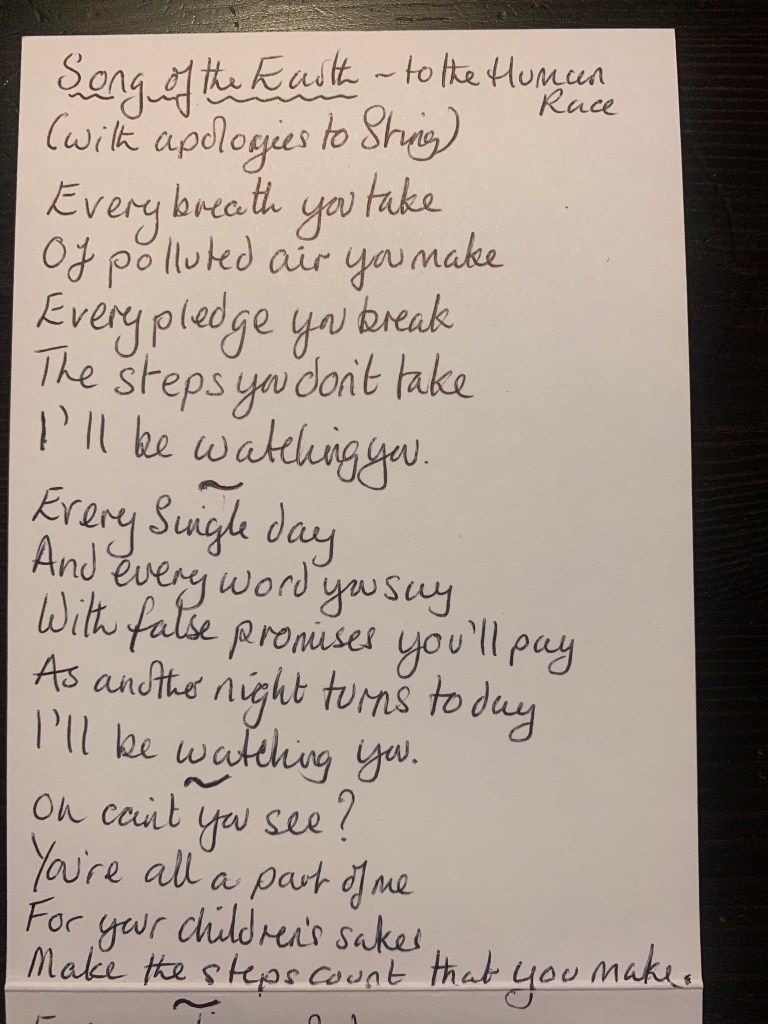 Song of the Earth ~ to the Human
Race
(with apologies to Sting)
Every breath you take
Of polluted air you make
Every pledge you break
The steps you don't take
I'll be watching you.
~
Every Single day
And every word you say
With false promises you'll pay
As another night turns to day
I'll be watching you.
~
Oh can't you see?
You're all a part of me
For your children's sakes
Make the steps count that you make.
~